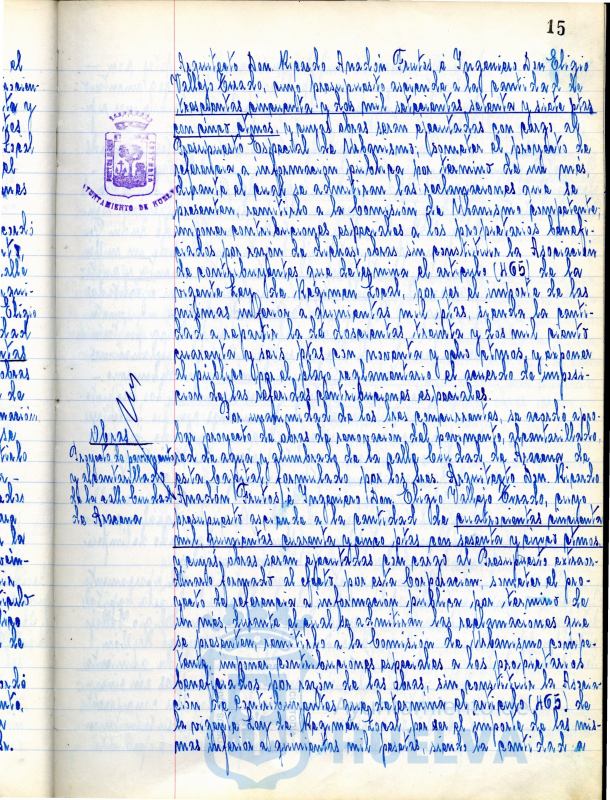 15
Arquitecto Don Ricardo Anadón Frutos, é Ingeniero Don Eligio
Vallejo Casado, cuyo presupuesto asciende a la cantidad de
trescientas cincuenta y dos mil setecientas setenta y siete ptas
con cinco ctmos. y cuyas obras seran ejecutadas con cargo al
Presupuesto Especial de Urbanismo; someter el proyecto de
referencia a información pública por termino de un mes,
durante el cual se admitiran las reclamaciones que se
presenten, remitirlo a la Comisión de Urbanismo competente;
imponer contribuciones especiales a los propietarios benefi-
ciados por razón de dichas obras sin constituir la Asociación
de contribuyentes que determina el articulo (465) de la
vigente Ley de Régimen Local, por ser el importe de las
mismas inferior a quinientas mil ptas, siendo la canti-
dad a repartir la de doscientas treinta y dos mil ciento
cuarenta y seis ptas con noventa y ocho ctmos y exponer
al público por el plazo reglamentario el acuerdo de imposi-
ción de las referidas contribuciones especiales.
Por unanimidad de los Sres concurrentes, se acordó apro-
Obras
Proyecto de pavimento
y alcantarillado
de la calle Ciudad
de Aracena
bar proyecto de obras de renovación del pavimento, alcantarillado,
de agua y alumbrado de la calle Ciudad de Aracena de
esta Capital, formulado por los Sres Arquitecto Don Ricardo
Anadón Frutos é Ingeniero Don Eligio Vallejo Casado, cuyo
presupuesto asciende a la cantidad de cuatrocientas cincuenta
mil quinientas cuarenta y cinco ptas con sesenta y cinco ctmos.
y cuyas obras seran ejecutadas con cargo al Presupuesto extraor-
dinario formado al efecto, por esta Corporación; someter el pro-
yecto de referencia a información pública por termino de
un mes, durante el cual se admitiran las reclamaciones que
se presenten, remitirlo a la Comisión de Urbanismo compe-
tente; imponer contribuciones especiales a los propietarios
beneficiados por razón de las obras, sin constituir la Asocia-
ción de Contribuyentes que determina el articulo (465) de
la vigente Ley de Régimen Local, por ser el importe de las mis-
mas inferior a quinientas mil pesetas, siendo la cantidad a
AYUNTAMIENTO DE HUELVA
HUELVA